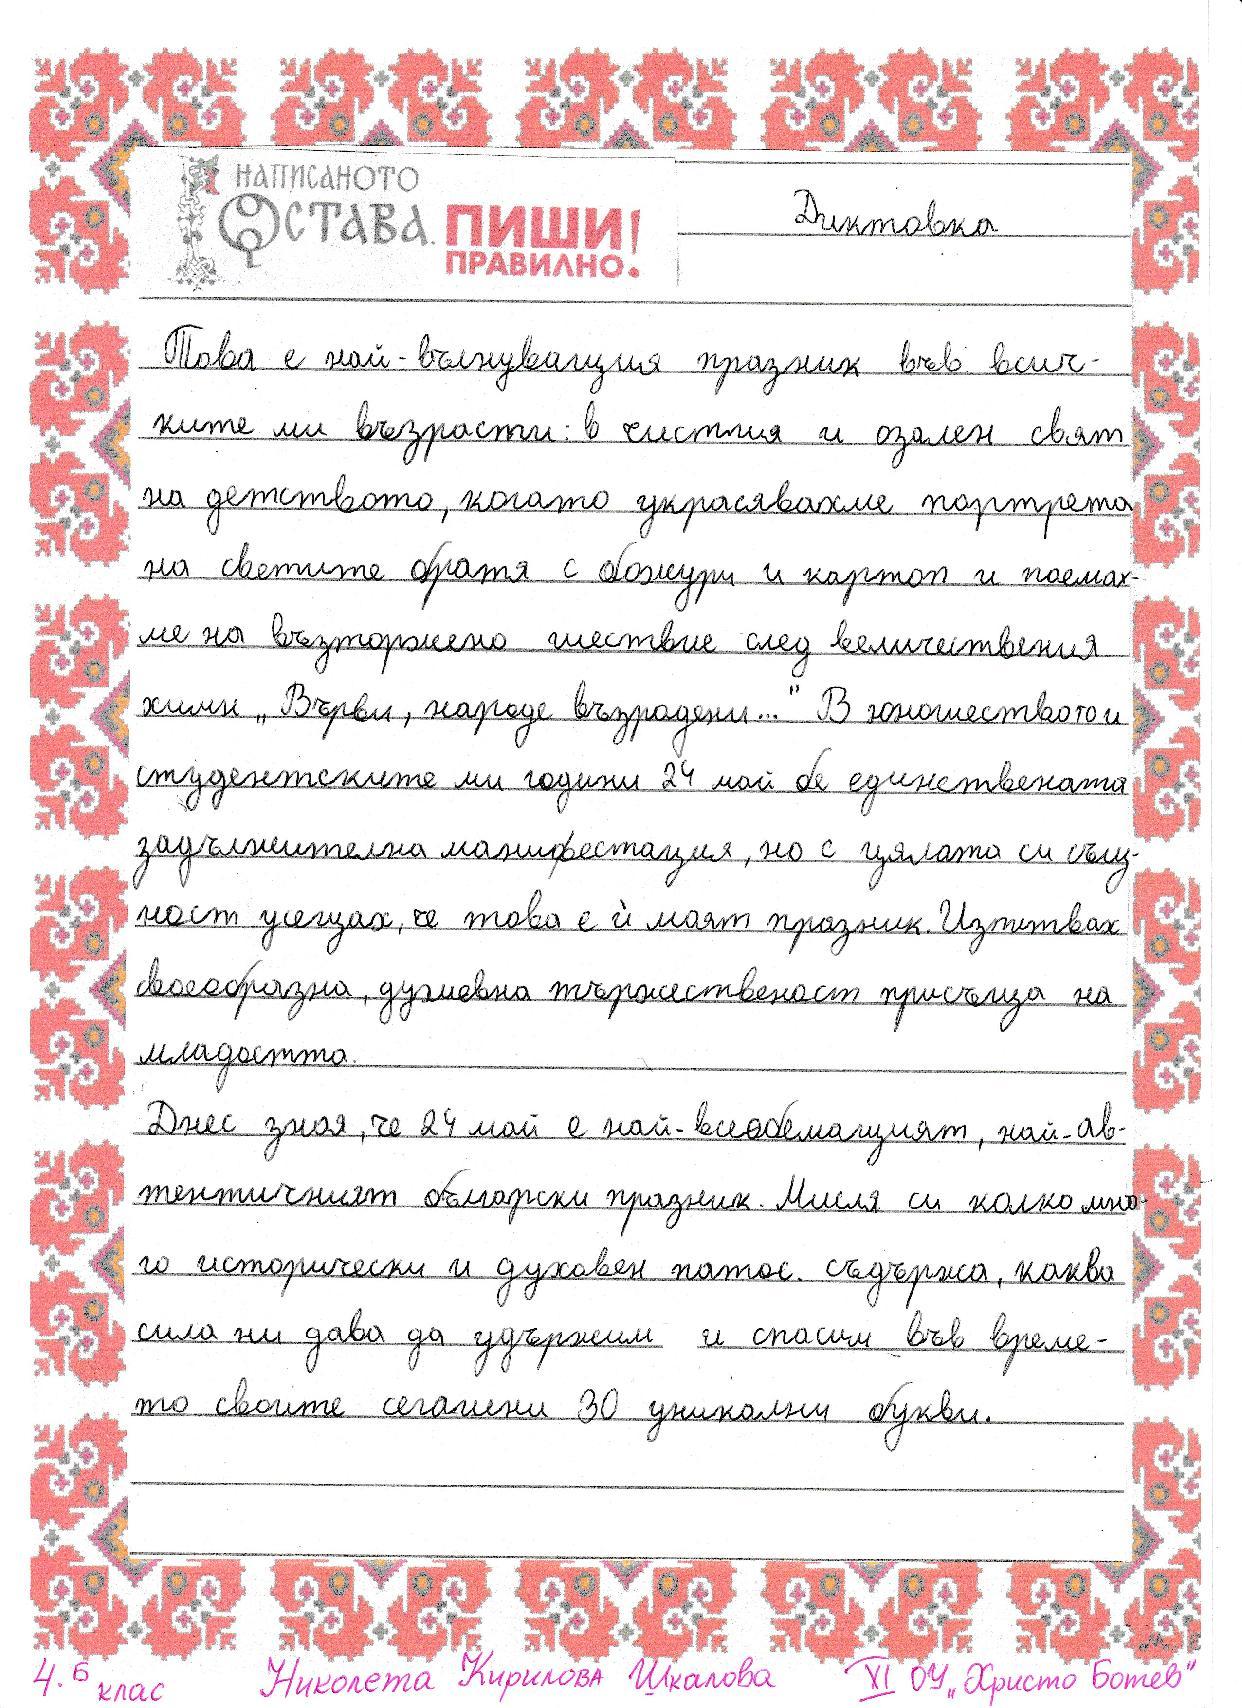 НАПИСАНОТО
ОСТАВА. ПИШИ
ПРАВИЛНО!
Диктовка
Това е най-вълнуващия празник във всич-
ките ми възрасти: в чистия и озален свят
на детството, когато украсявахме портрета
на светите братя с божури и картоп и поемах-
ме на възторжено шествие след величествения
химн „Върви, народе възродени..." В юношеството и
студентските ми години 24 май бе единствената
задължителна манифестация, но с цялата си същ-
ност усещах, че това е ѝ моят празник. Изпитвах
своеобразна, душевна тържественост присъща на
младостта.
Днес зная, че 24 май е най-всеобемащият, най-ав-
тентичният български празник. Мисля си колко мно-
го исторически и духовен патос съдържа, каква
сила ни дава да удържим и спасим във време-
то своите сегашни 30 уникални букви.
4. б клас Николета Кирилова Шкалова XI ОУ „Христо Ботев"